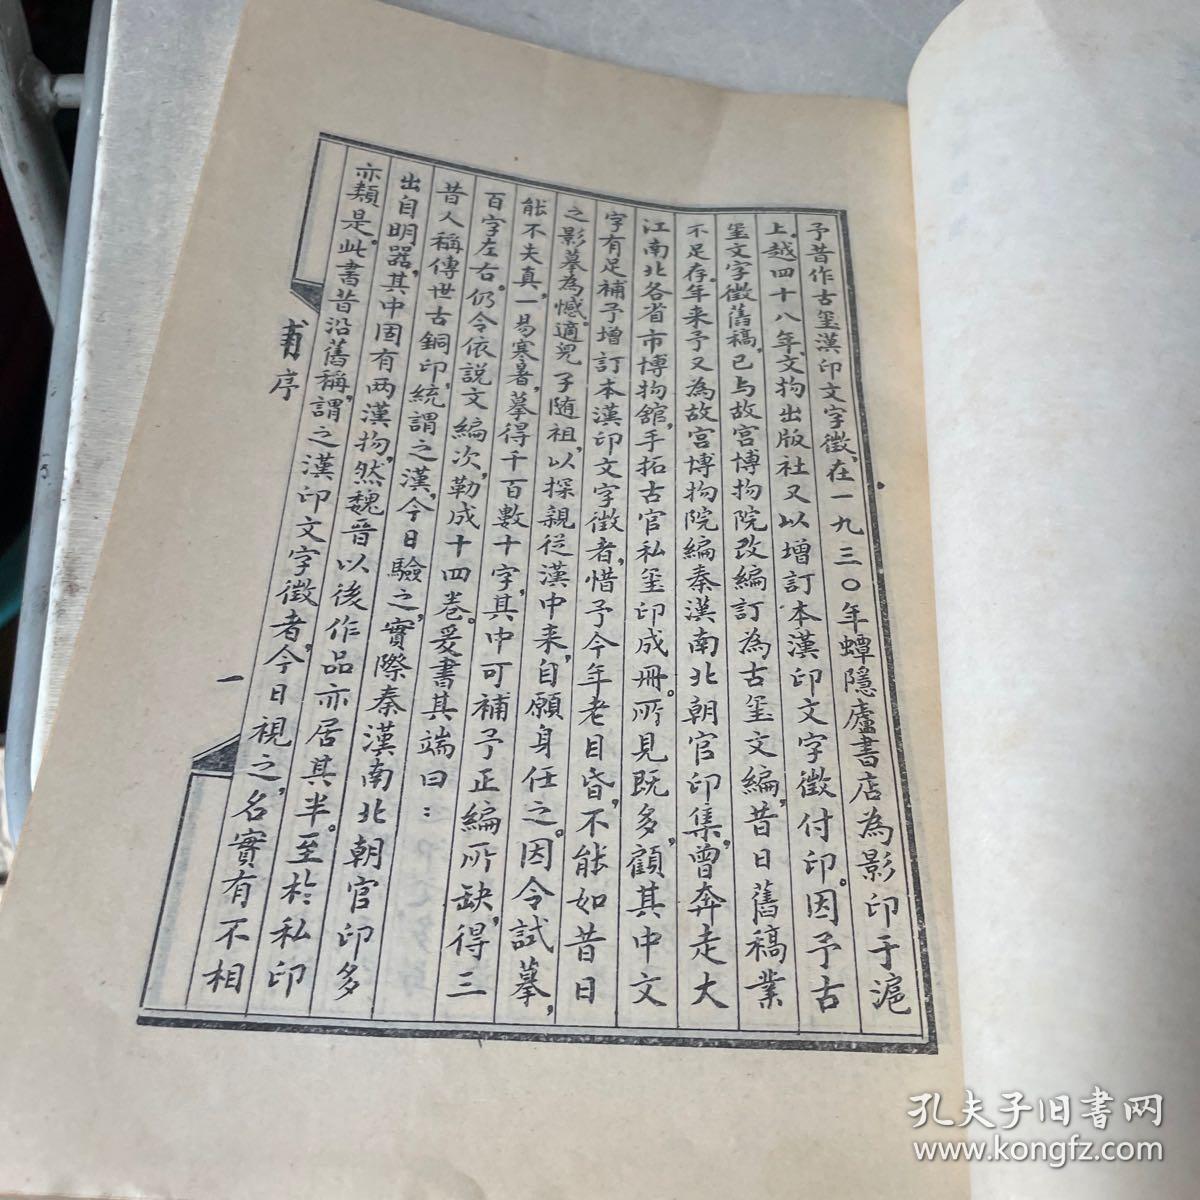 予昔作古璽漢印文字徵，在一九三〇年蟫隱廬書店為影印于滬
上。越四十八年，文物出版社又以增訂本漢印文字徵付印。因予古
璽文字徵舊稿，已与故宫博物院改編訂為古璽文編，昔日舊稿業
不足存。年来予又為故宫博物院編秦漢南北朝官印集，曾奔走大
江南北各省市博物館，手拓古官私璽印成册。所見既多，顧其中文
字有足補予增訂本漢印文字徵者，惜予今年老目昏，不能如昔日
之影摹為憾。適兒子随祖，以探親從漢中来，自願身任之。因令試摹，
能不失真，一易寒暑，摹得千百數十字，其中可補予正編所缺，得三
百字左右。仍令依説文編次，勒成十四卷。爰書其端曰：
昔人稱傳世古銅印，統謂之漢，今日驗之，實際秦漢南北朝官印多
出自明器，其中固有两漢物，然魏晋以後作品亦居其半。至於私印
亦類是。此書昔沿舊稱，謂之漢印文字徵者，今日視之，名實有不相
序
一
孔夫子旧书网
www.kongfz.com